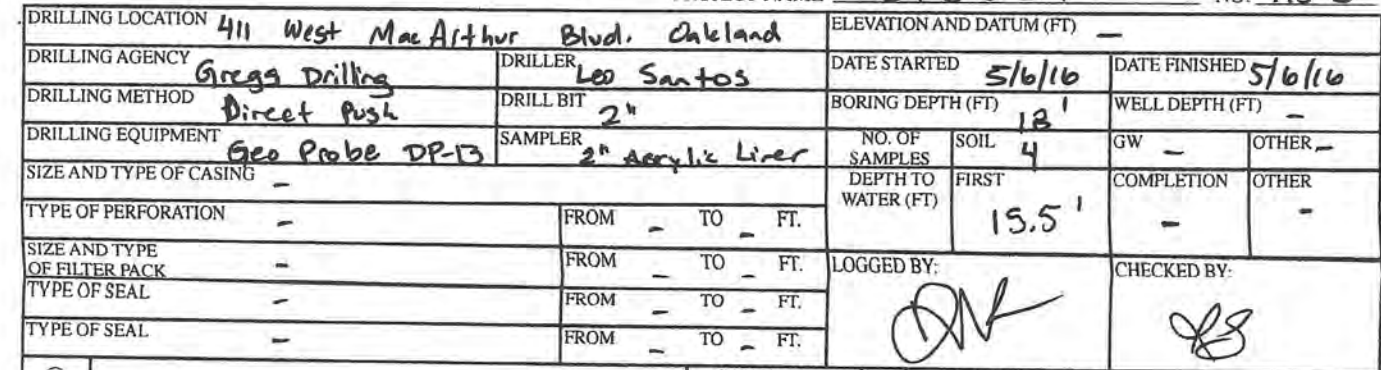 DRILLING LOCATION 411 West MacArthur Blvd. Oakland ELEVATION AND DATUM (FT) –
DRILLING AGENCY Gregg Drilling DRILLER Leo Santos DATE STARTED 5/6/16 DATE FINISHED 5/6/16
DRILLING METHOD Direct Push DRILL BIT 2" BORING DEPTH (FT) 18' WELL DEPTH (FT) –
DRILLING EQUIPMENT Geo Probe DP-13 SAMPLER 2" Acrylic Liner NO. OF SAMPLES SOIL 4 GW – OTHER –
SIZE AND TYPE OF CASING – DEPTH TO WATER (FT) FIRST 15.5' COMPLETION – OTHER –
TYPE OF PERFORATION – FROM – TO – FT.
SIZE AND TYPE OF FILTER PACK – FROM – TO – FT. LOGGED BY: CHECKED BY:
TYPE OF SEAL – FROM – TO – FT.
TYPE OF SEAL – FROM – TO – FT.